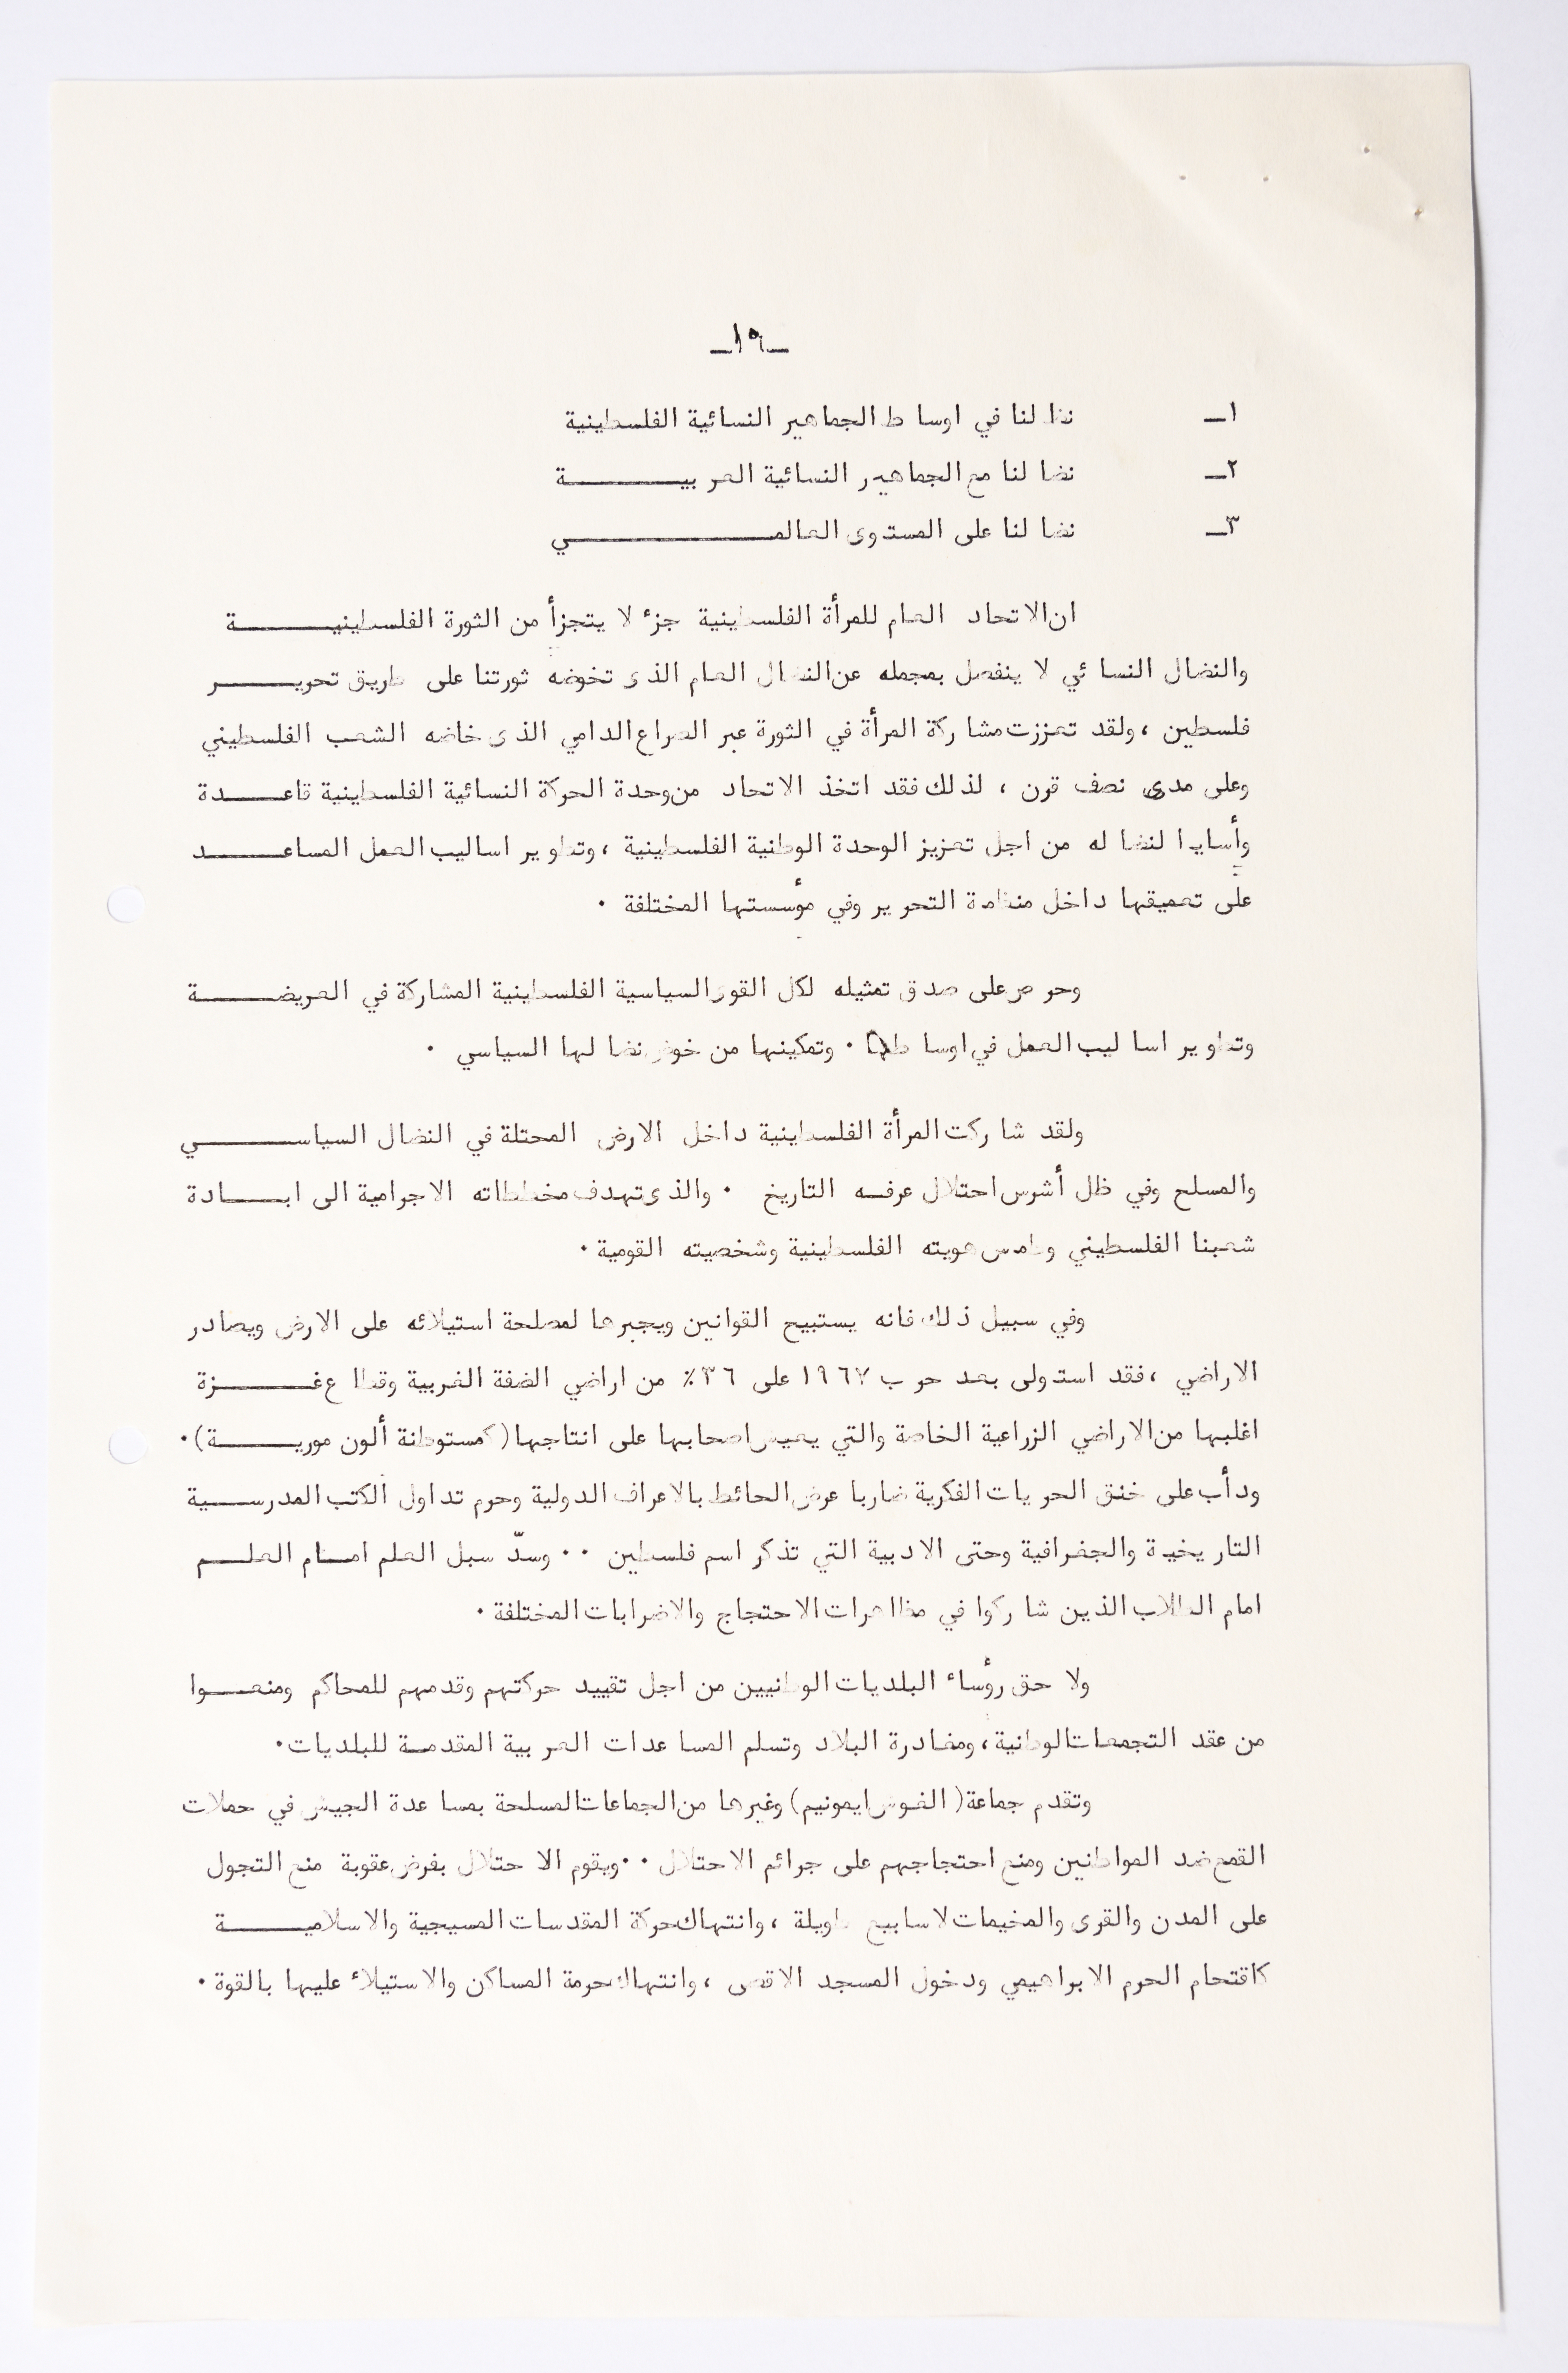 ـ١٩ـ
١ـ نضالنا في اوساط الجماهير النسائية الفلسطينية
٢ـ نضالنا مع الجماهير النسائية العربيـــــــة
٣ـ نضالنا على المستوى العالمـــــــــــــي
ان الاتحاد العام للمرأة الفلسطينية جزء لا يتجزأ من الثورة الفلسطينيـــــــة
والنضال النسائي لا ينفصل بمجمله عن النضال العام الذى تخوضه ثورتنا على طريق تحريـــــر
فلسطين ، ولقد تعززت مشاركة المرأة في الثورة عبر الصراع الدامي الذى خاضه الشعب الفلسطيني
وعلى مدى نصف قرن ، لذلك فقد اتخذ الاتحاد من وحدة الحركة النسائية الفلسطينية قاعــــدة
وأساسا لنضاله من اجل تعزيز الوحدة الوطنية الفلسطينية ، وتطوير اساليب العمل المساعـــــد
على تعميقها داخل منظمة التحرير وفي مؤسستها المختلفة ٠
وحرص على صدق تمثيله لكل القوى السياسية الفلسطينية المشاركة في العريضـــــــة
وتطوير اساليب العمل في اوساطها ٠ وتمكينها من خوض نضالها السياسي ٠
ولقد شاركت المرأة الفلسطينية داخل الارض المحتلة في النضال السياســـــــي
والمسلح وفي ظل أشرس احتلال عرفه التاريخ ٠ والذى تهدف مخططاته الاجرامية الى ابـــــادة
شعبنا الفلسطيني وطمس هويته الفلسطينية وشخصيته القومية ٠
وفي سبيل ذلك فانه يستبيح القوانين ويجبرها لمصلحة استيلائه على الارض ويصادر
الاراضي ، فقد استولى بعد حرب ١٩٦٧ على ٣٦٪ من اراضي الضفة الغربية وقطاع غـــــزة
اغلبها من الاراضي الزراعية الخاصة والتي يعيش اصحابها على انتاجها (كمستوطنة ألون موريـــــة) ٠
ودأب على خنق الحريات الفكرية ضاربا عرض الحائط بالاعراف الدولية وحرم تداول الكتب المدرســـية
التاريخية والجغرافية وحتى الادبية التي تذكر اسم فلسطين ٠٠ وسدّ سبل العلم امــام العلــم
امام الطلاب الذين شاركوا في مظاهرات الاحتجاج والاضرابات المختلفة ٠
ولا حق رؤساء البلديات الوطنيين من اجل تقييد حركتهم وقدمهم للمحاكم ومنعـــوا
من عقد التجمعات الوطنية ، ومغادرة البلاد وتسلم المساعدات العربية المقدمة للبلديات ٠
وتقدم جماعة (الغوس ايمونيم) وغيرها من الجماعات المسلحة بمساعدة الجيش في حملات
القمع ضد المواطنين ومنع احتجاجهم على جرائم الاحتلال ٠٠ ويقوم الاحتلال بفرض عقوبة منع التجول
على المدن والقرى والمخيمات لاسابيع طويلة ، وانتهاك حركة المقدسات المسيحية والاسلاميـــــة
كاقتحام الحرم الابراهيمي ودخول المسجد الاقصى ، وانتهاك حرمة المساكن والاستيلاء عليها بالقوة ٠